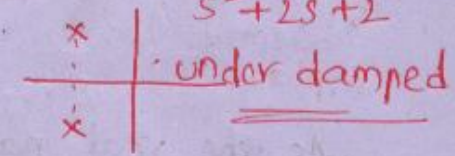 s²+2s+2
under damped